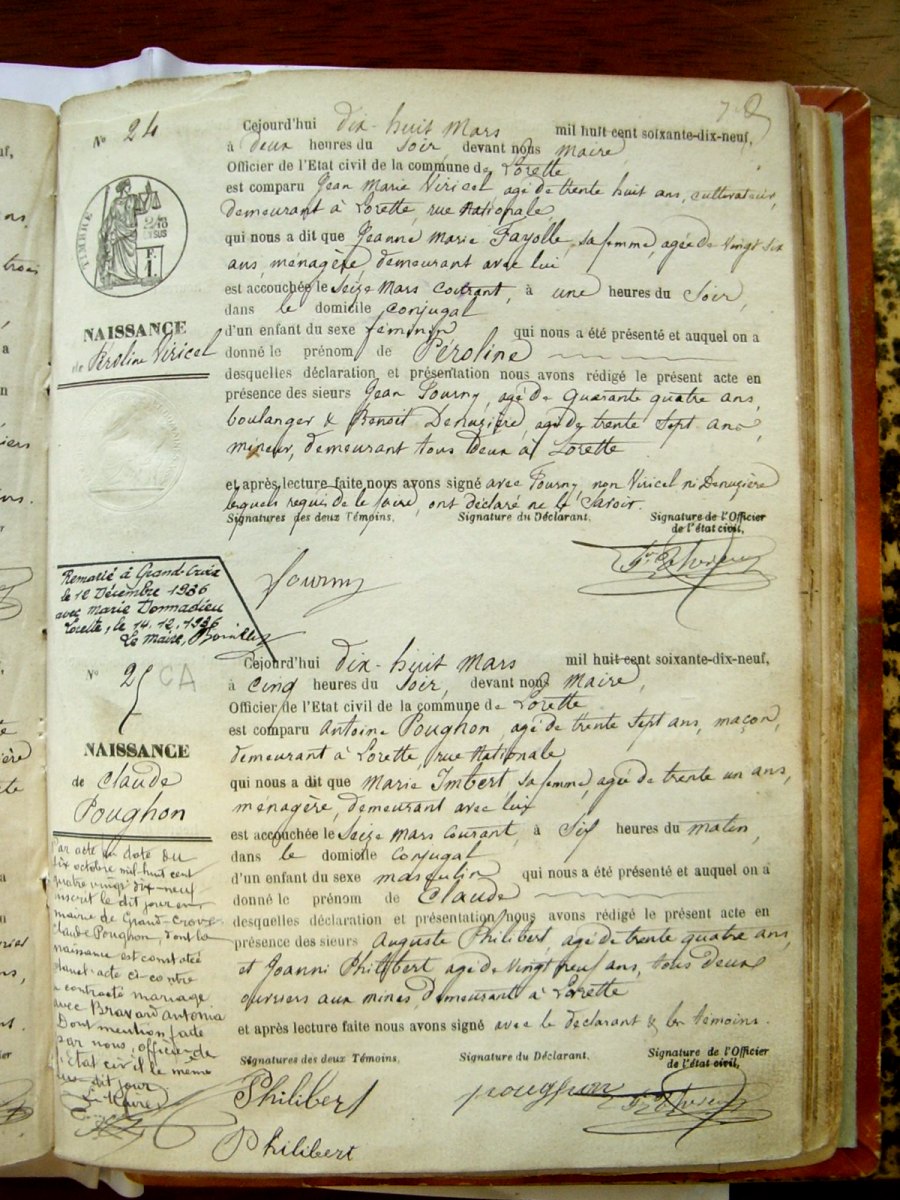 Nº 24
TIMBRE
NAISSANCE
de Péroline Viricel
Cejourd'hui dix-huit Mars mil huit cent soixante-dix-neuf,
à deux heures du Soir devant nous Maire
Officier de l'Etat civil de la commune de Lorette
est comparu Jean Marie Viricel agé de trente huit ans, cultivateur,
demeurant à Lorette, rue Nationale,
qui nous a dit que Jeanne Marie Fayolle, sa femme, agée de Vingt six
ans, ménagère, demeurant avec lui
est accouchée le Seize Mars Courant, à une heures du Soir,
dans le domicile conjugal
d'un enfant du sexe féminin qui nous a été présenté et auquel on a
donné le prénom de Péroline
desquelles déclaration et présentation nous avons rédigé le présent acte en
présence des sieurs Jean Fourny, agé de Quarante quatre ans,
boulanger & Benoit Denuzière, agé de trente Sept ans,
mineur, demeurant tous deux à Lorette
et après lecture faite nous avons signé avec Fourny, non Viricel ni Denuzière
lesquels requis de le faire, ont déclaré ne le Savoir.
Signatures des deux Témoins. Signature du Déclarant. Signature de l'Officier
de l'état civil,
fourny
Remarié à Grand-Croix
le 12 Décembre 1936
avec Marie Donnadieu
Lorette, le 14.12.1936
Le Maire,
Nº 25 CA
NAISSANCE
de Claude
Poughon
Cejourd'hui dix-huit Mars mil huit cent soixante-dix-neuf,
à Cinq heures du Soir, devant nous Maire,
Officier de l'Etat civil de la commune de Lorette
est comparu Antoine Poughon, agé de trente Sept ans, maçon,
demeurant à Lorette, rue Nationale
qui nous a dit que Marie Imbert, sa femme, agée de trente un ans,
ménagère, demeurant avec lui
est accouchée le Seize Mars Courant, à Six heures du matin,
dans le domicile Conjugal
d'un enfant du sexe masculin qui nous a été présenté et auquel on a
donné le prénom de Claude
desquelles déclaration et présentation nous avons rédigé le présent acte en
présence des sieurs Auguste Philibert, agé de trente quatre ans,
et Joanni Philibert agé de Vingt neuf ans, tous deux
ouvriers aux mines, demeurant à Lorette
et après lecture faite nous avons signé avec le déclarant & les témoins.
Signatures des deux Témoins. Signature du Déclarant. Signature de l'Officier
de l'état civil,
Philibert poughon
Philibert
Par acte en date du
dix octobre mil-huit cent
quatre vingt dix-neuf
inscrit le dit jour en
mairie de Grand-Croix
Claude Poughon, dont la
naissance est constatée
acte ci-contre
a contracté mariage
avec Bravard Antonia
Dont mention faite
par nous, officier de
l'Etat civil le même
dit jour
Le Maire